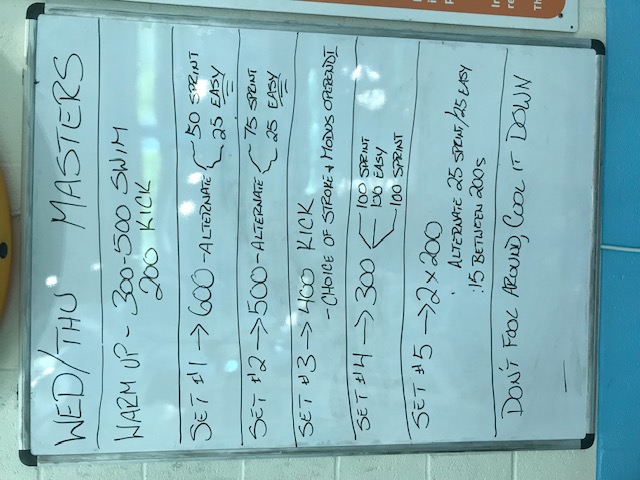 WED/THU MASTERS
WARM UP - 300-500 SWIM
200 KICK
SET #1 → 600 - ALTERNATE 50 SPRINT
25 EASY
SET #2 → 500 - ALTERNATE 75 SPRINT
25 EASY
SET #3 → 400 KICK
- CHOICE OF STROKE + MODUS OPERENDI
SET #4 → 300 100 SPRINT
100 EASY
100 SPRINT
SET #5 → 2 x 200
ALTERNATE 25 SPRINT/25 EASY
:15 BETWEEN 200s
DON'T FOOL AROUND, COOL IT DOWN